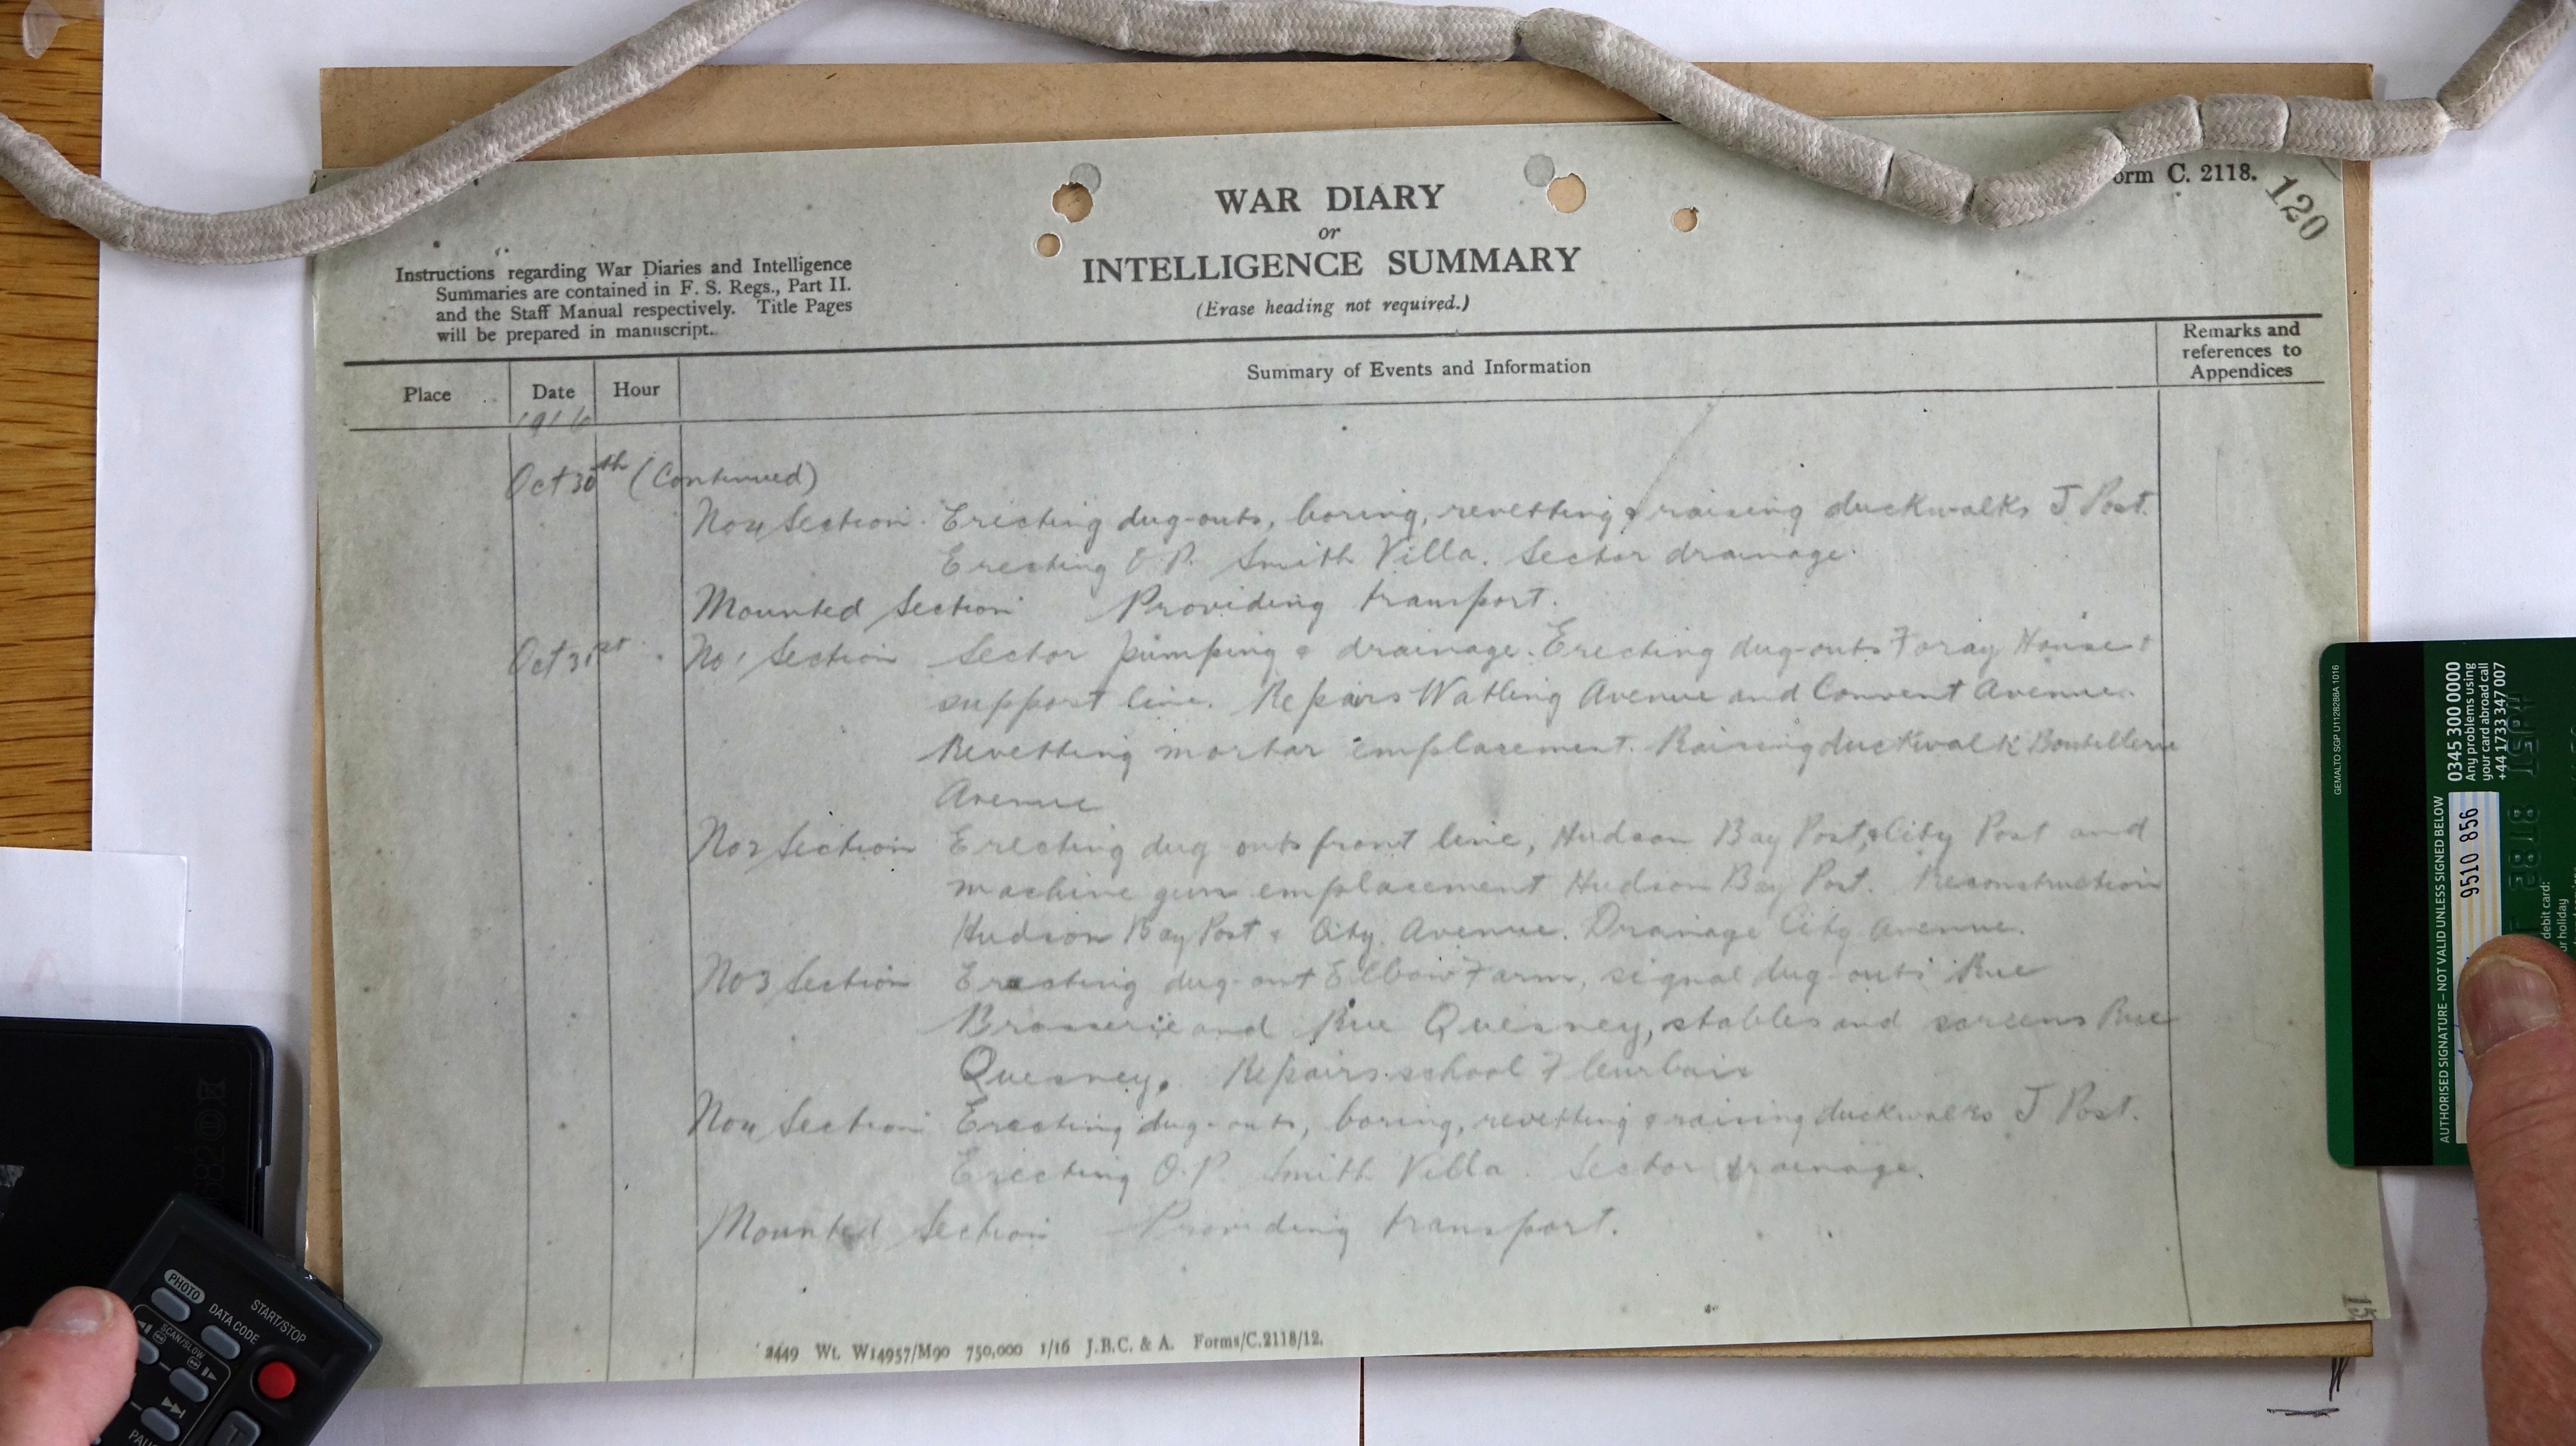 Form C. 2118.
120
WAR DIARY
or
INTELLIGENCE SUMMARY
(Erase heading not required.)
Instructions regarding War Diaries and Intelligence
Summaries are contained in F. S. Regs., Part II.
and the Staff Manual respectively. Title Pages
will be prepared in manuscript.
Place
Date
Hour
Summary of Events and Information
Remarks and
references to
Appendices
1916
Oct 30th (Continued)
No 4 Section. Erecting dug-outs, boring, revetting & raising duckwalks J Post.
Erecting O P. Smith Villa. Sector drainage.
Mounted Section Providing transport.
Oct 31st. No 1 Section Sector pumping & drainage. Erecting dug-outs Foray House &
support line. Repairs Watling Avenue and Convent Avenue.
Revetting mortar emplacement. Raising duckwalk Boutillerie
Avenue
No 2 Section Erecting dug outs front line, Hudson Bay Post, & City Post and
machine gun emplacement Hudson Bay Post. Reconstruction
Hudson Bay Post & City Avenue. Drainage City Avenue.
No 3 Section Erecting dug-out Elbow Farm, signal dug-outs Rue
Brasserie and Rue Quesney, stables and screens Rue
Quesney. Repairs school Fleurbaix
No 4 Section Erecting dug-outs, boring, revetting & raising duckwalks J Post.
Erecting O.P. Smith Villa. Sector drainage.
Mounted Section Providing transport.
2449 Wt. W14957/M90 750,000 1/16 J.B.C. & A. Forms/C.2118/12.
15
GEMALTO SGP U1128288A 1016
0345 300 0000
Any problems using
your card abroad call
+44 1733 347 007
AUTHORISED SIGNATURE – NOT VALID UNLESS SIGNED BELOW
9510 856
debit card:
holiday
PHOTO
DATA CODE
START/STOP
SCAN/SLOW